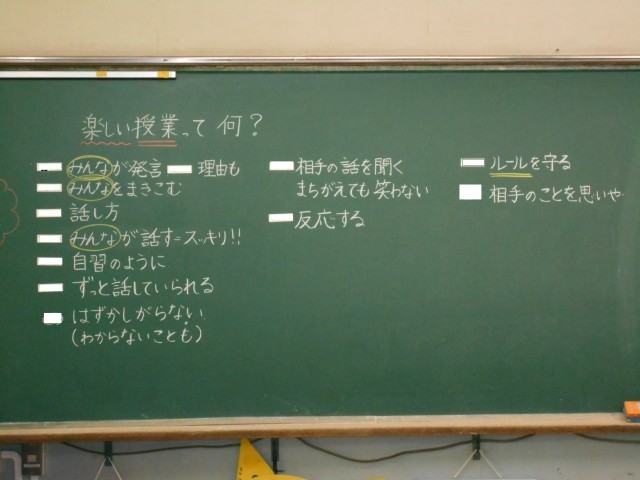 楽しい授業って何?
みんなが発言 理由も
みんなをまきこむ
話し方
みんなが話す=スッキリ!!
自習のように
ずっと話していられる
はずかしがらない
(わからないことも)
相手の話を聞く
まちがえても笑わない
反応する
ルールを守る
相手のことを思いや